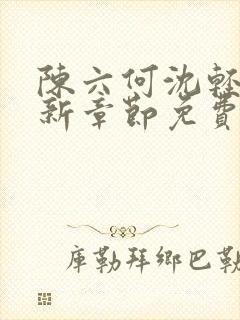 陳六何沈輕
新章節免費
庫勒拜鄉巴勒